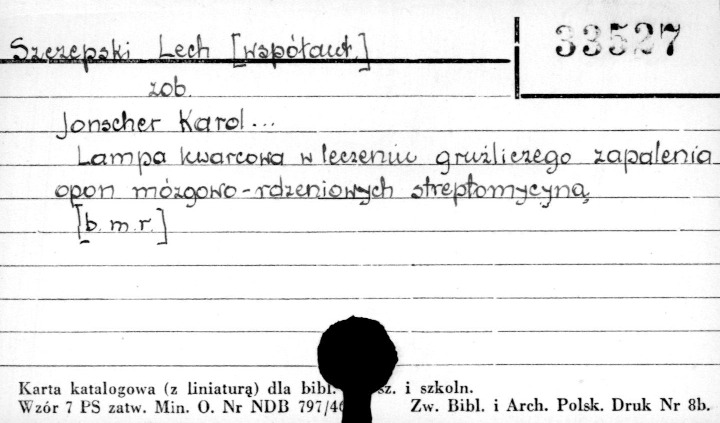 Szczepski Lech [współaut.]
33527
zob.
Jonscher Karol...
Lampa kwarcowa w leczeniu gruźliczego zapalenia
opon mózgowo-rdzeniowych streptomycyną
[b.m.r.]
Karta katalogowa (z liniaturą) dla bibl. sz. i szkoln.
Wzór 7 PS zatw. Min. O. Nr NDB 797/46 Zw. Bibl. i Arch. Polsk. Druk Nr 8b.